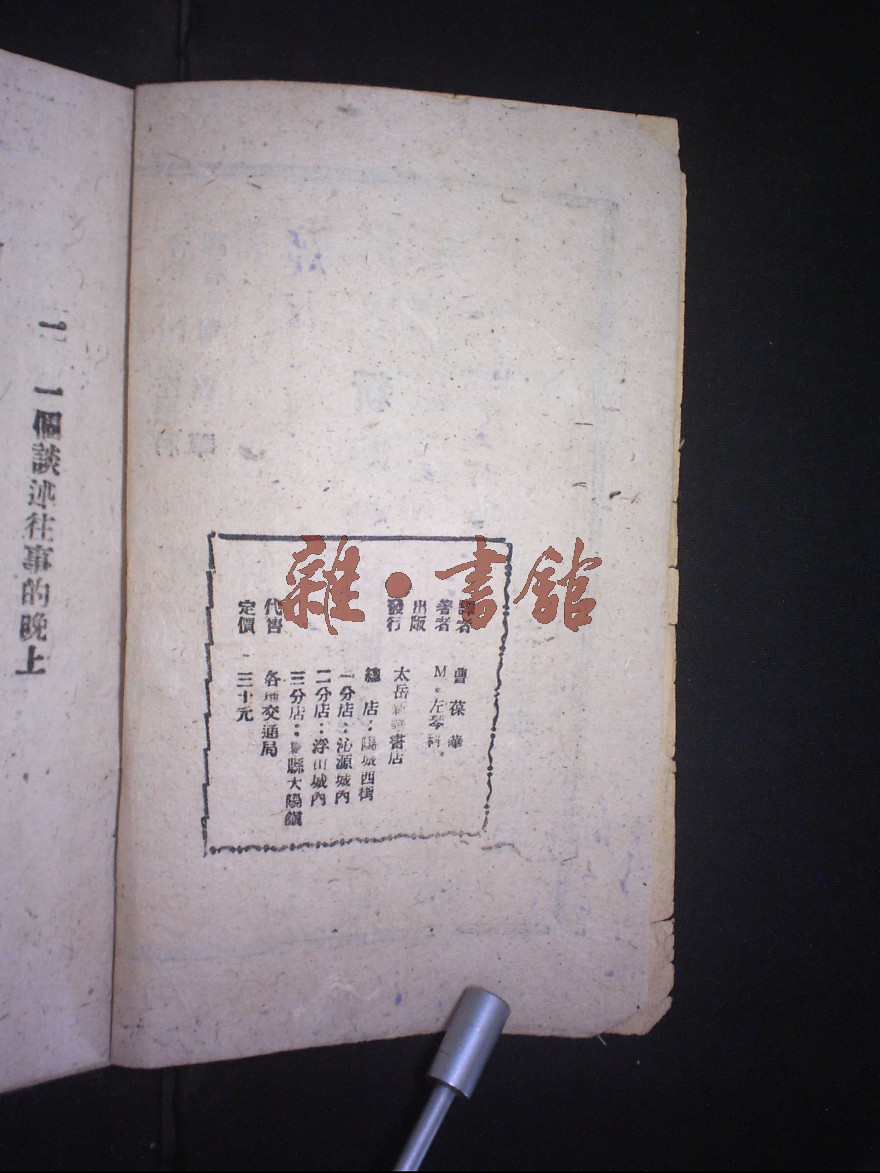 譯者 曹葆華
著者 M·左琴科·
出版
發行 太岳新華書店
總店：陽城西街
一分店：沁源城內
二分店：浮山城內
三分店：縣大陽鎮
代售 各地交通局
定價 三十元
二 一個談述往事的晚上
雜·書館